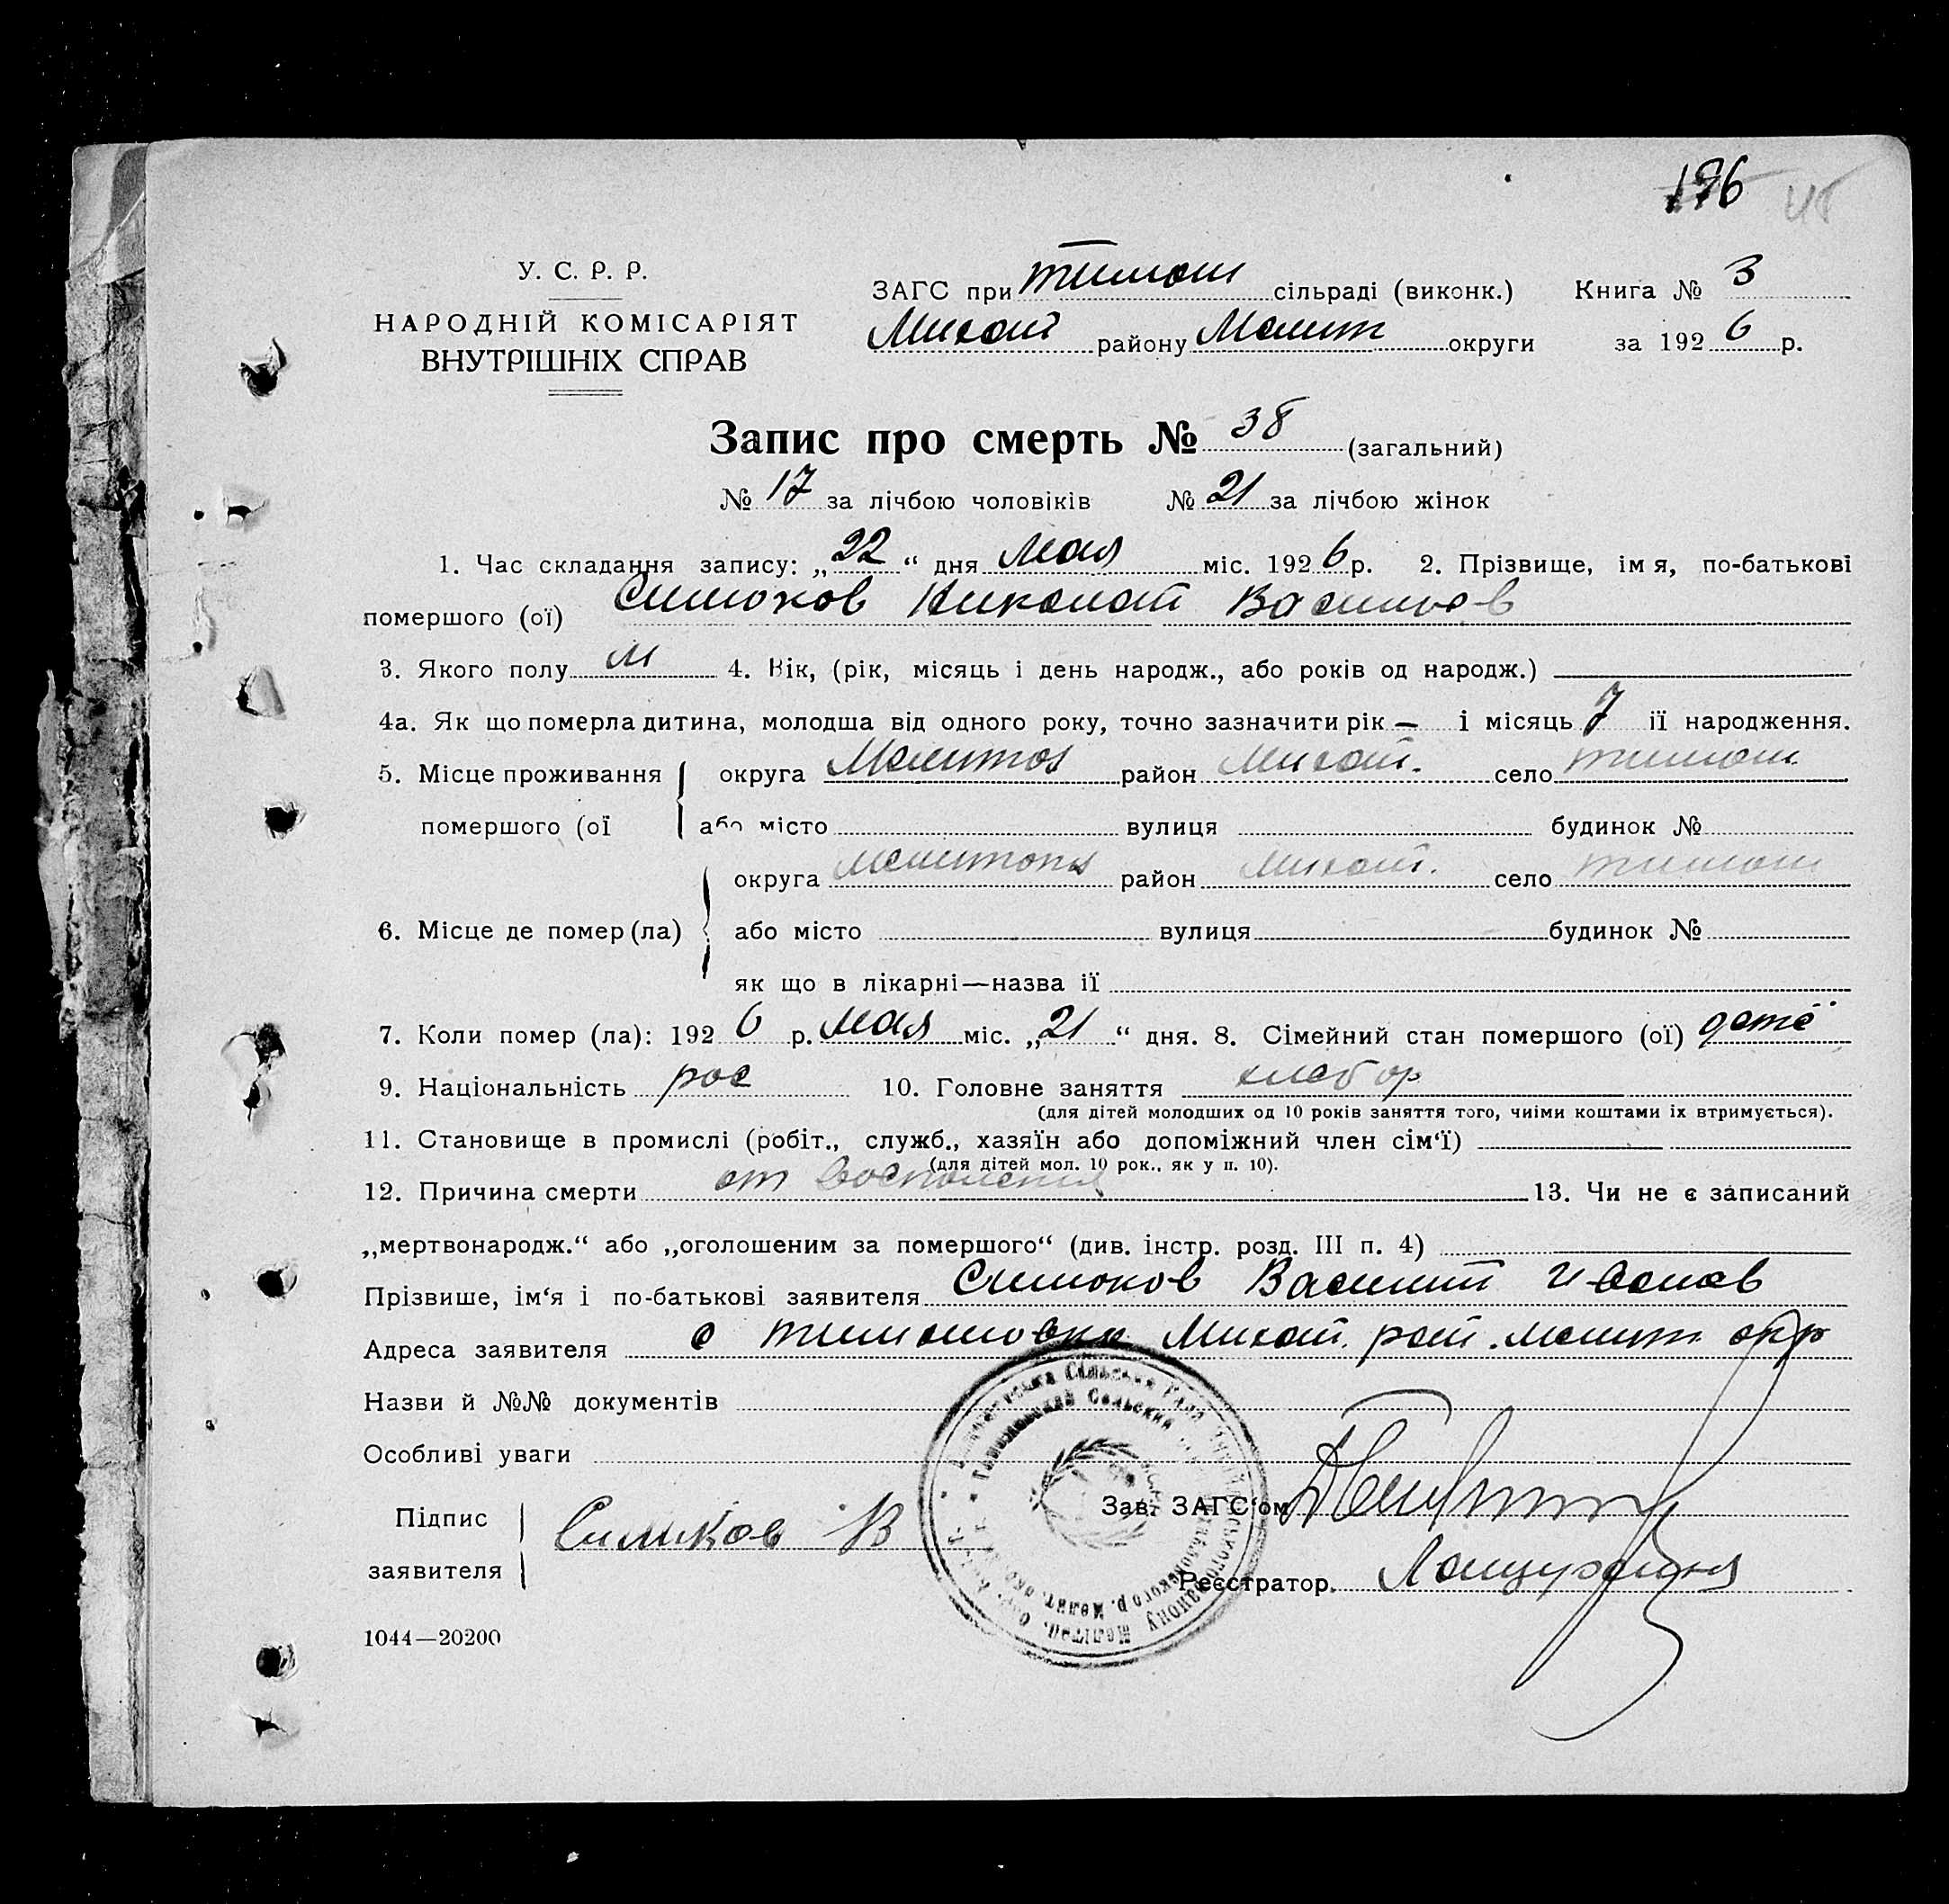 196
У. С. Р. Р.
НАРОДНІЙ КОМІСАРІЯТ
ВНУТРІШНІХ СПРАВ
ЗАГС при тимош сільраді (виконк.) Книга № 3
Михай району Мелит округи за 1926 р.
Запис про смерть № 38 (загальний)
№ 17 за лічбою чоловіків № 21 за лічбою жінок
1. Час складання запису: „22“ дня Мая міс. 1926 р. 2. Прізвище, імя, по-батькові
помершого (ої) Симоков Николай Васильев
3. Якого полу м 4. Вік, (рік, місяць і день народж., або років од народж.)
4а. Як що померла дитина, молодша від одного року, точно зазначити рік — і місяць 7 її народження.
5. Місце проживання округа Мелитоп район Михай. село тимош.
помершого (ої або місто вулиця будинок №
округа мелитопол район Михай. село тимош
6. Місце де помер (ла) або місто вулиця будинок №
як що в лікарні—назва ії
7. Коли помер (ла): 1926 р. мая міс. „21“ дня. 8. Сімейний стан помершого (ої) дитё
9. Національність рос 10. Головне заняття хлебор
(для дітей молодших од 10 років заняття того, чиїми коштами їх втримується).
11. Становище в промислі (робіт., служб., хазяїн або допоміжний член сім‘ї)
(для дітей мол. 10 рок., як у п. 10).
12. Причина смерти от воспаления 13. Чи не є записаний
„мертвонародж.“ або „оголошеним за помершого“ (див. інстр. розд. III п. 4)
Прізвише, ім‘я і по-батькові заявителя Симоков Василий Иванов
Адреса заявителя с тимошовка Михай. рай. мелит окр
Назви й №№ документів
Особливі уваги
Підпис
заявителя Симоков В
Зав. ЗАГС‘ом
Реєстратор.
1044—20200